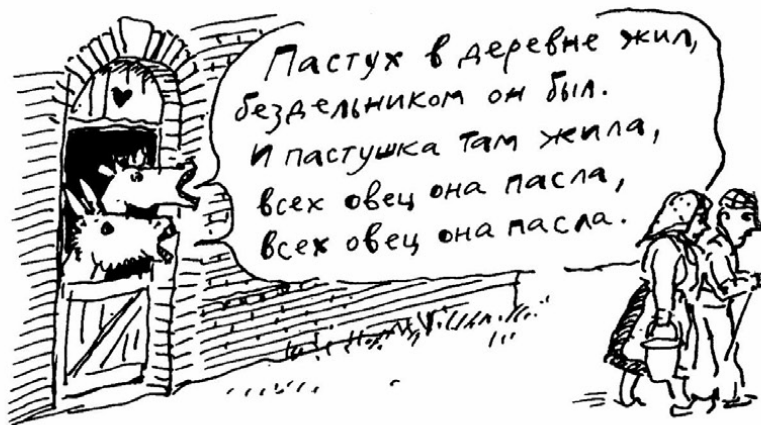 Пастух в деревне жил,
бездельником он был.
И пастушка там жила,
всех овец она пасла,
всех овец она пасла.